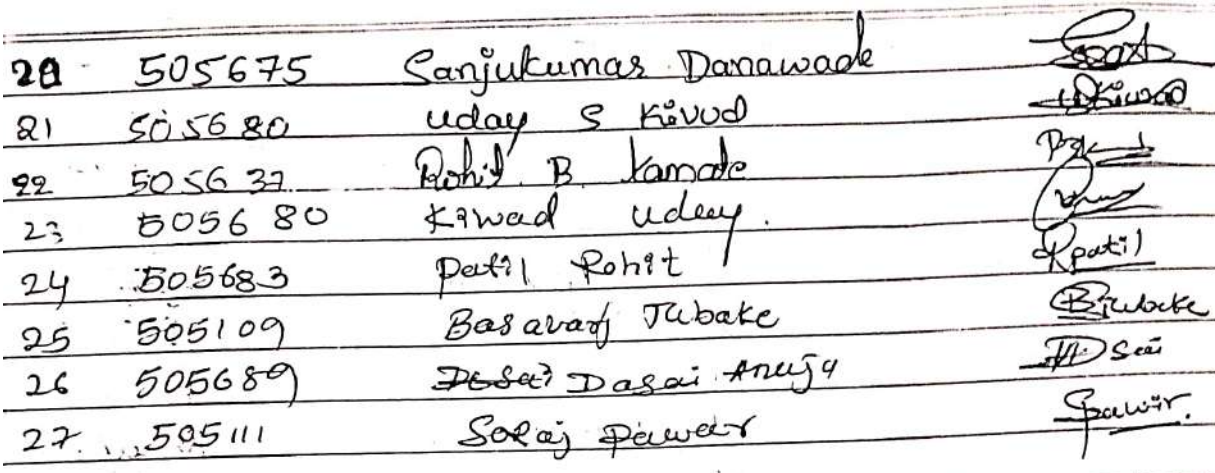 20 505675 Sanjukumar Danawade
21 505680 uday S Kivud Ukiwad
22 505637 Rohit B kamate
23 505680 Kiwad uday.
24 505683 Patil Rohit Rpatil
25 505109 Basavaraj Jubake BJubake
26 505689 Desai Dasai Anuja
27. 505111 Soraj Pawar Spawar.